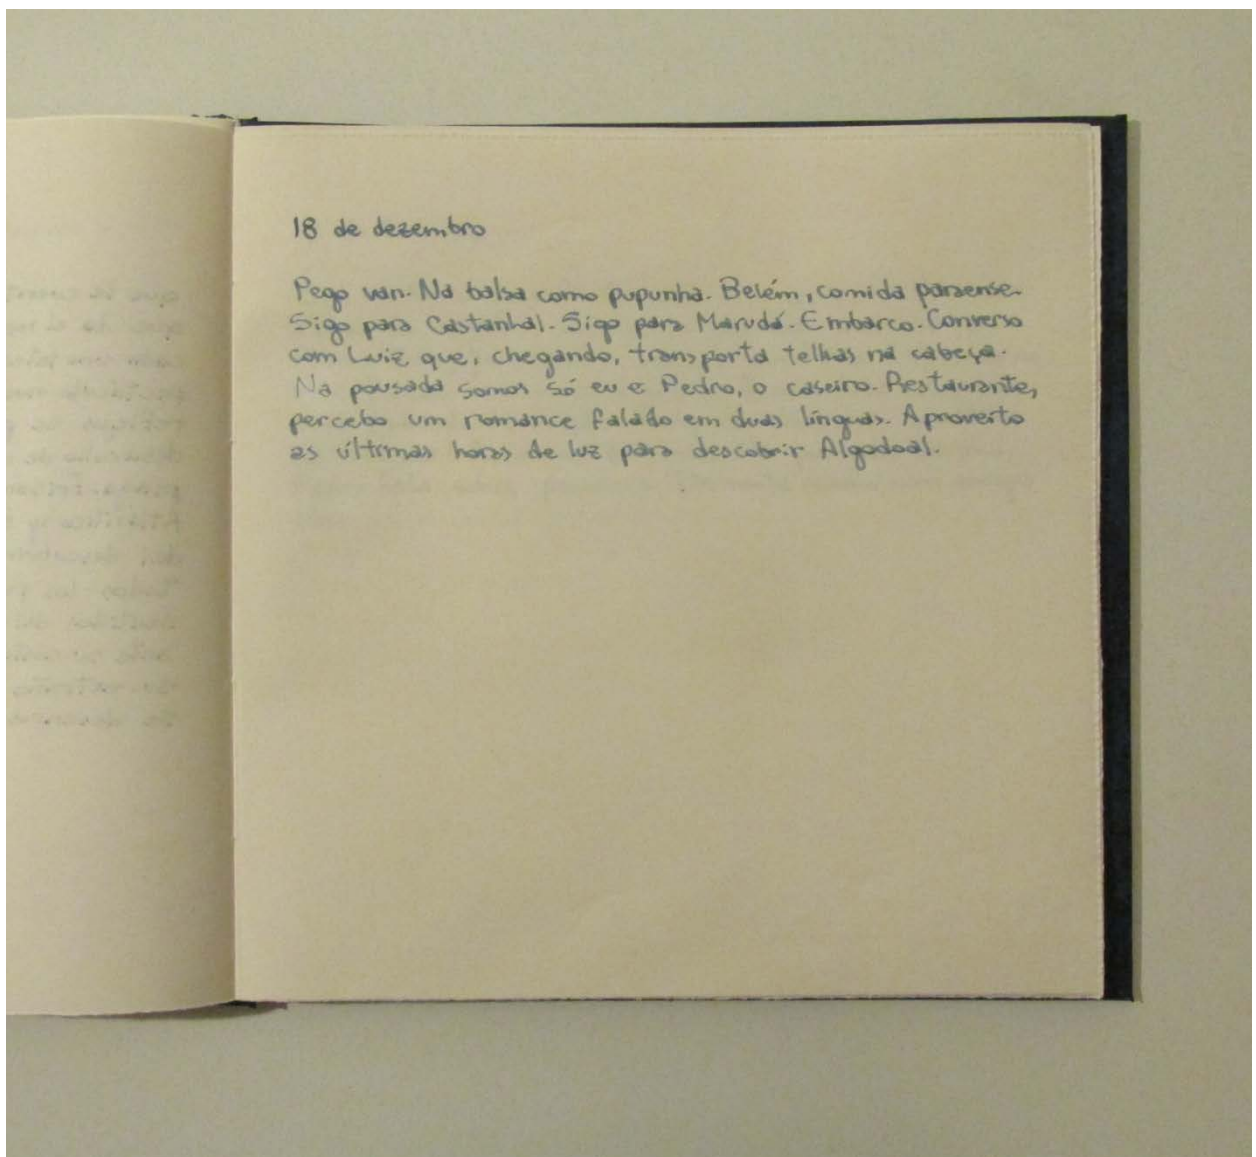 18 de dezembro
Pego van. Na balsa como pupunha. Belém, comida paraense.
Sigo para Castanhal. Sigo para Marudá. Embarco. Converso
com Luiz que, chegando, transporta telhas na cabeça.
Na pousada somos só eu e Pedro, o caseiro. Restaurante,
percebo um romance falado em duas línguas. Aproveito
as últimas horas de luz para descobrir Algodoal.